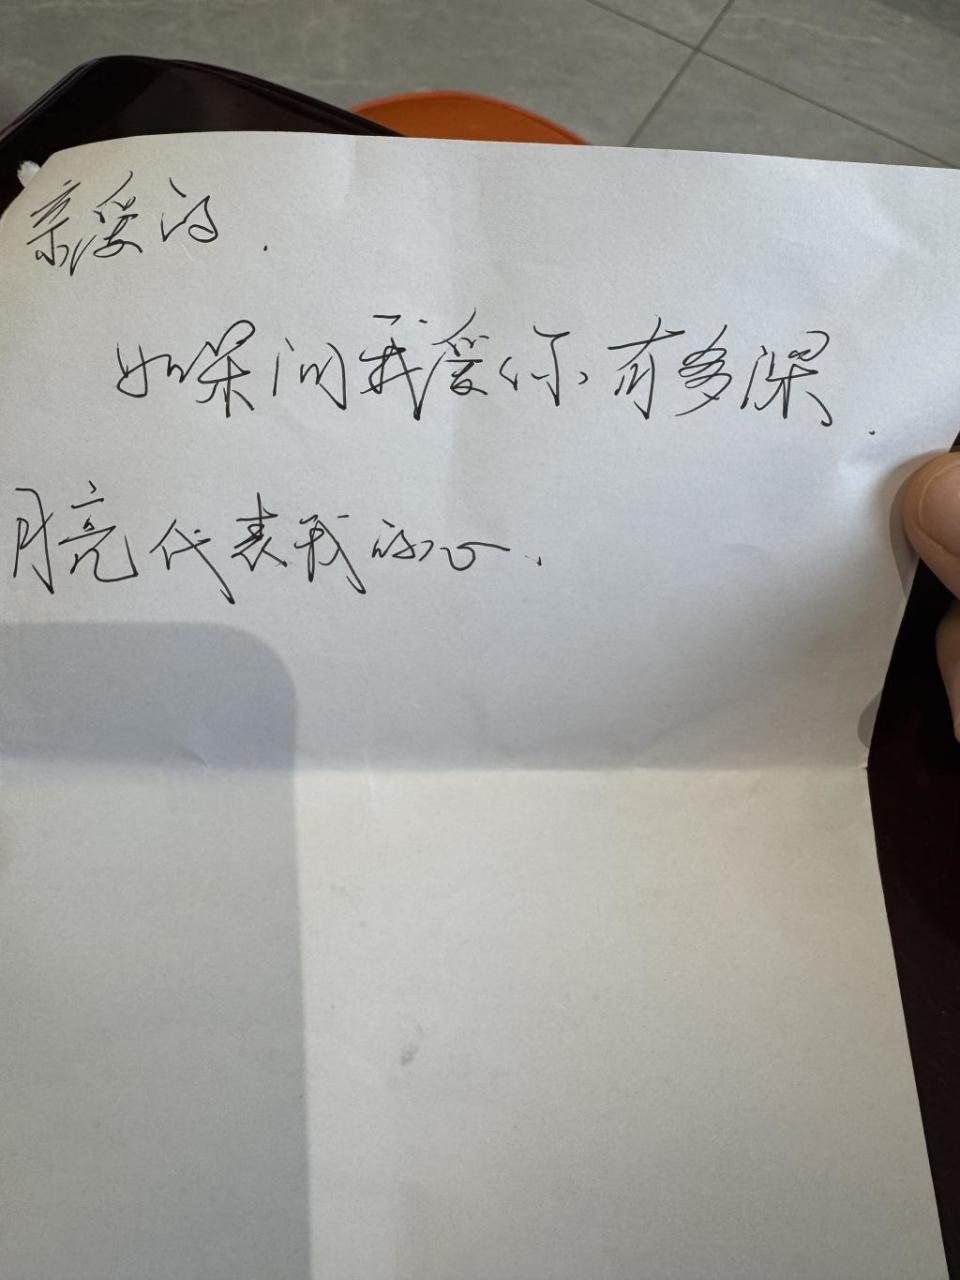 亲爱的.
如果问我爱你有多深.
月亮代表我的心.